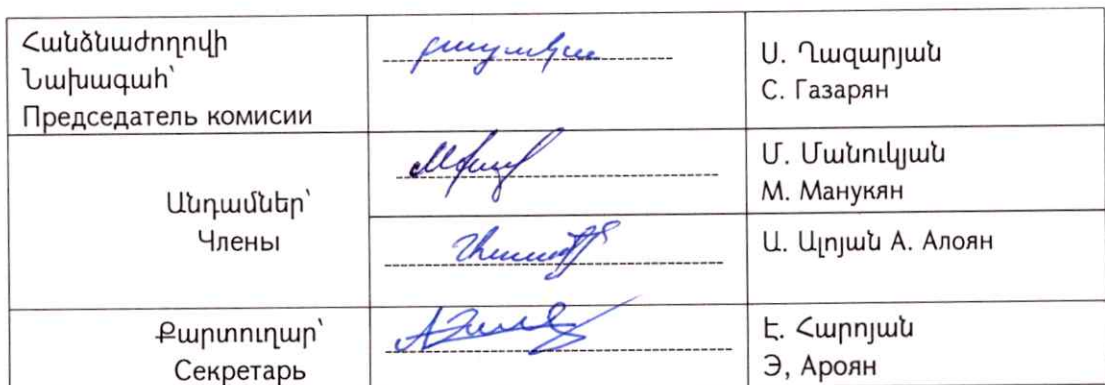 Հանձնաժողովի
Նախագահ՝
Председатель комисии
Ս. Ղազարյան
С. Газарян
Անդամներ՝
Члены
Մ. Մանուկյան
М. Манукян
Ա. Ալոյան А. Алоян
Քարտուղար՝
Секретарь
Է. Հարոյան
Э, Ароян